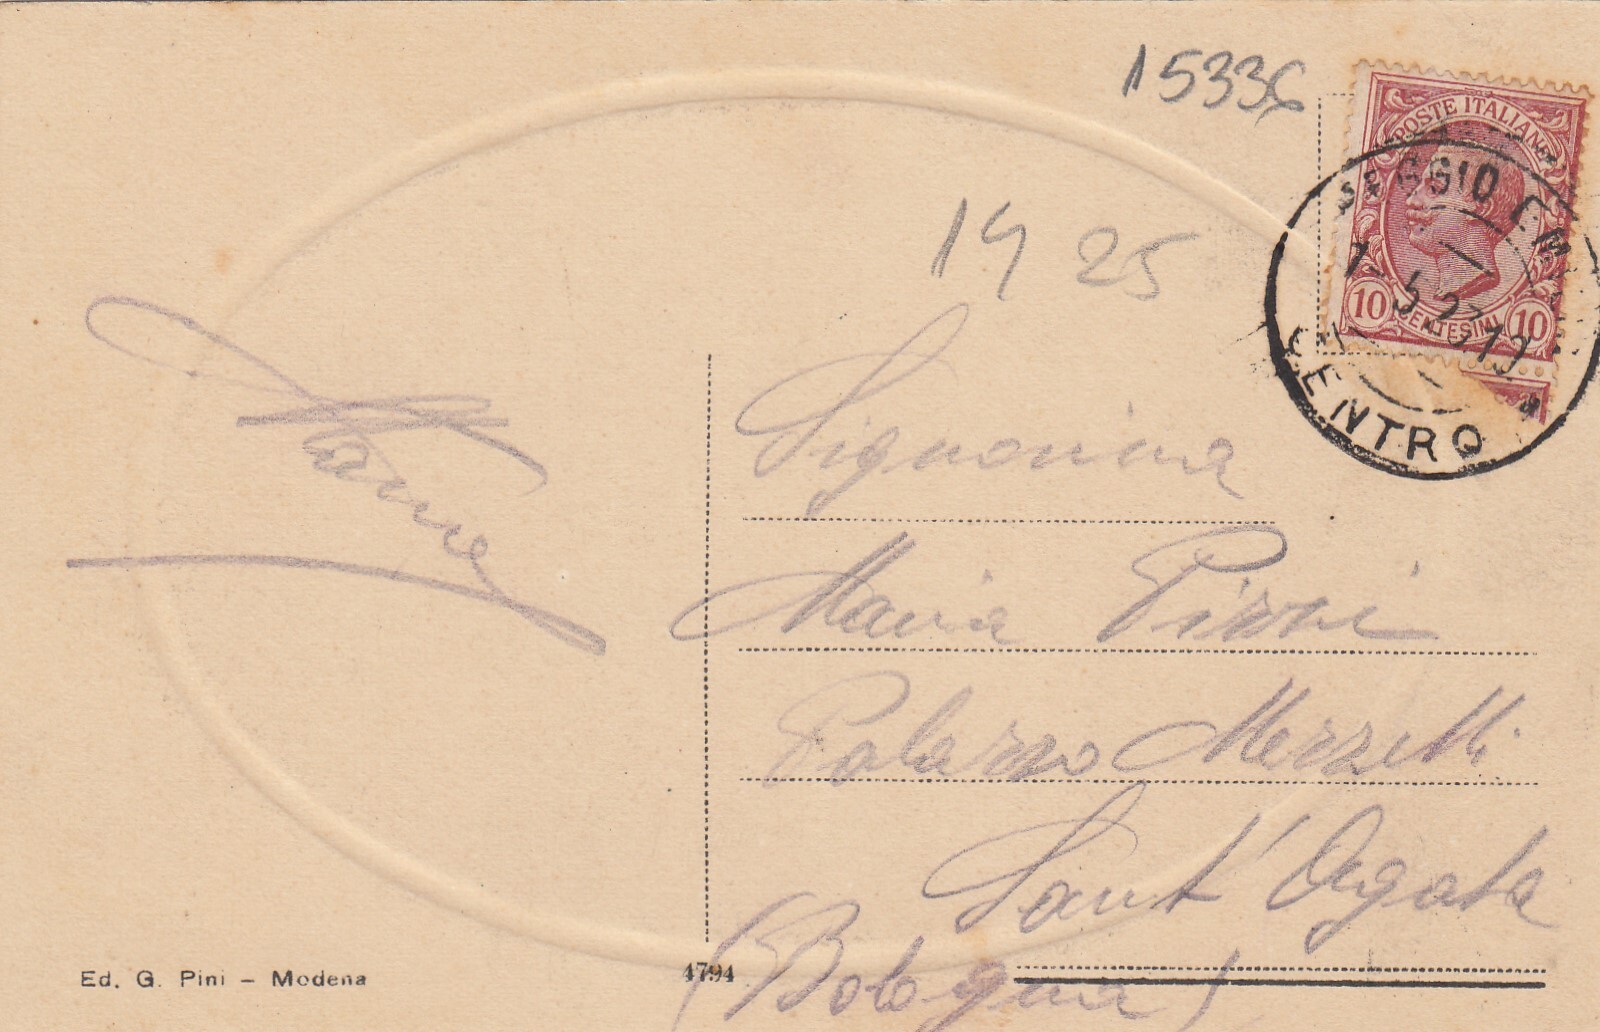 15336
POSTE ITALIANE
10 CENTESIMI 10
REGGIO EMILIA
CENTRO
1925
Signorina
Maria Pizzi
Palazzo Merzelli
Sant'Agata
(Bologna)
Ed. G. Pini – Modena
4794